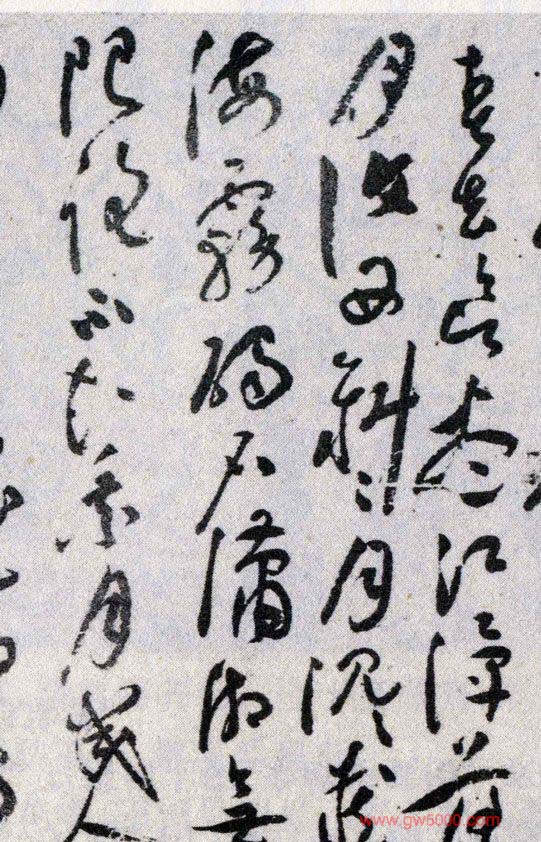 春去欲盡江潭落
月復西斜〻月沉〻藏
海霧碣石瀟湘無
限路不知乘月幾人
www.gw5000.com